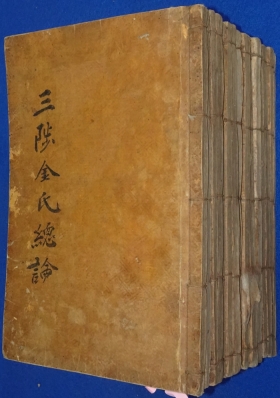 三陟金氏總論